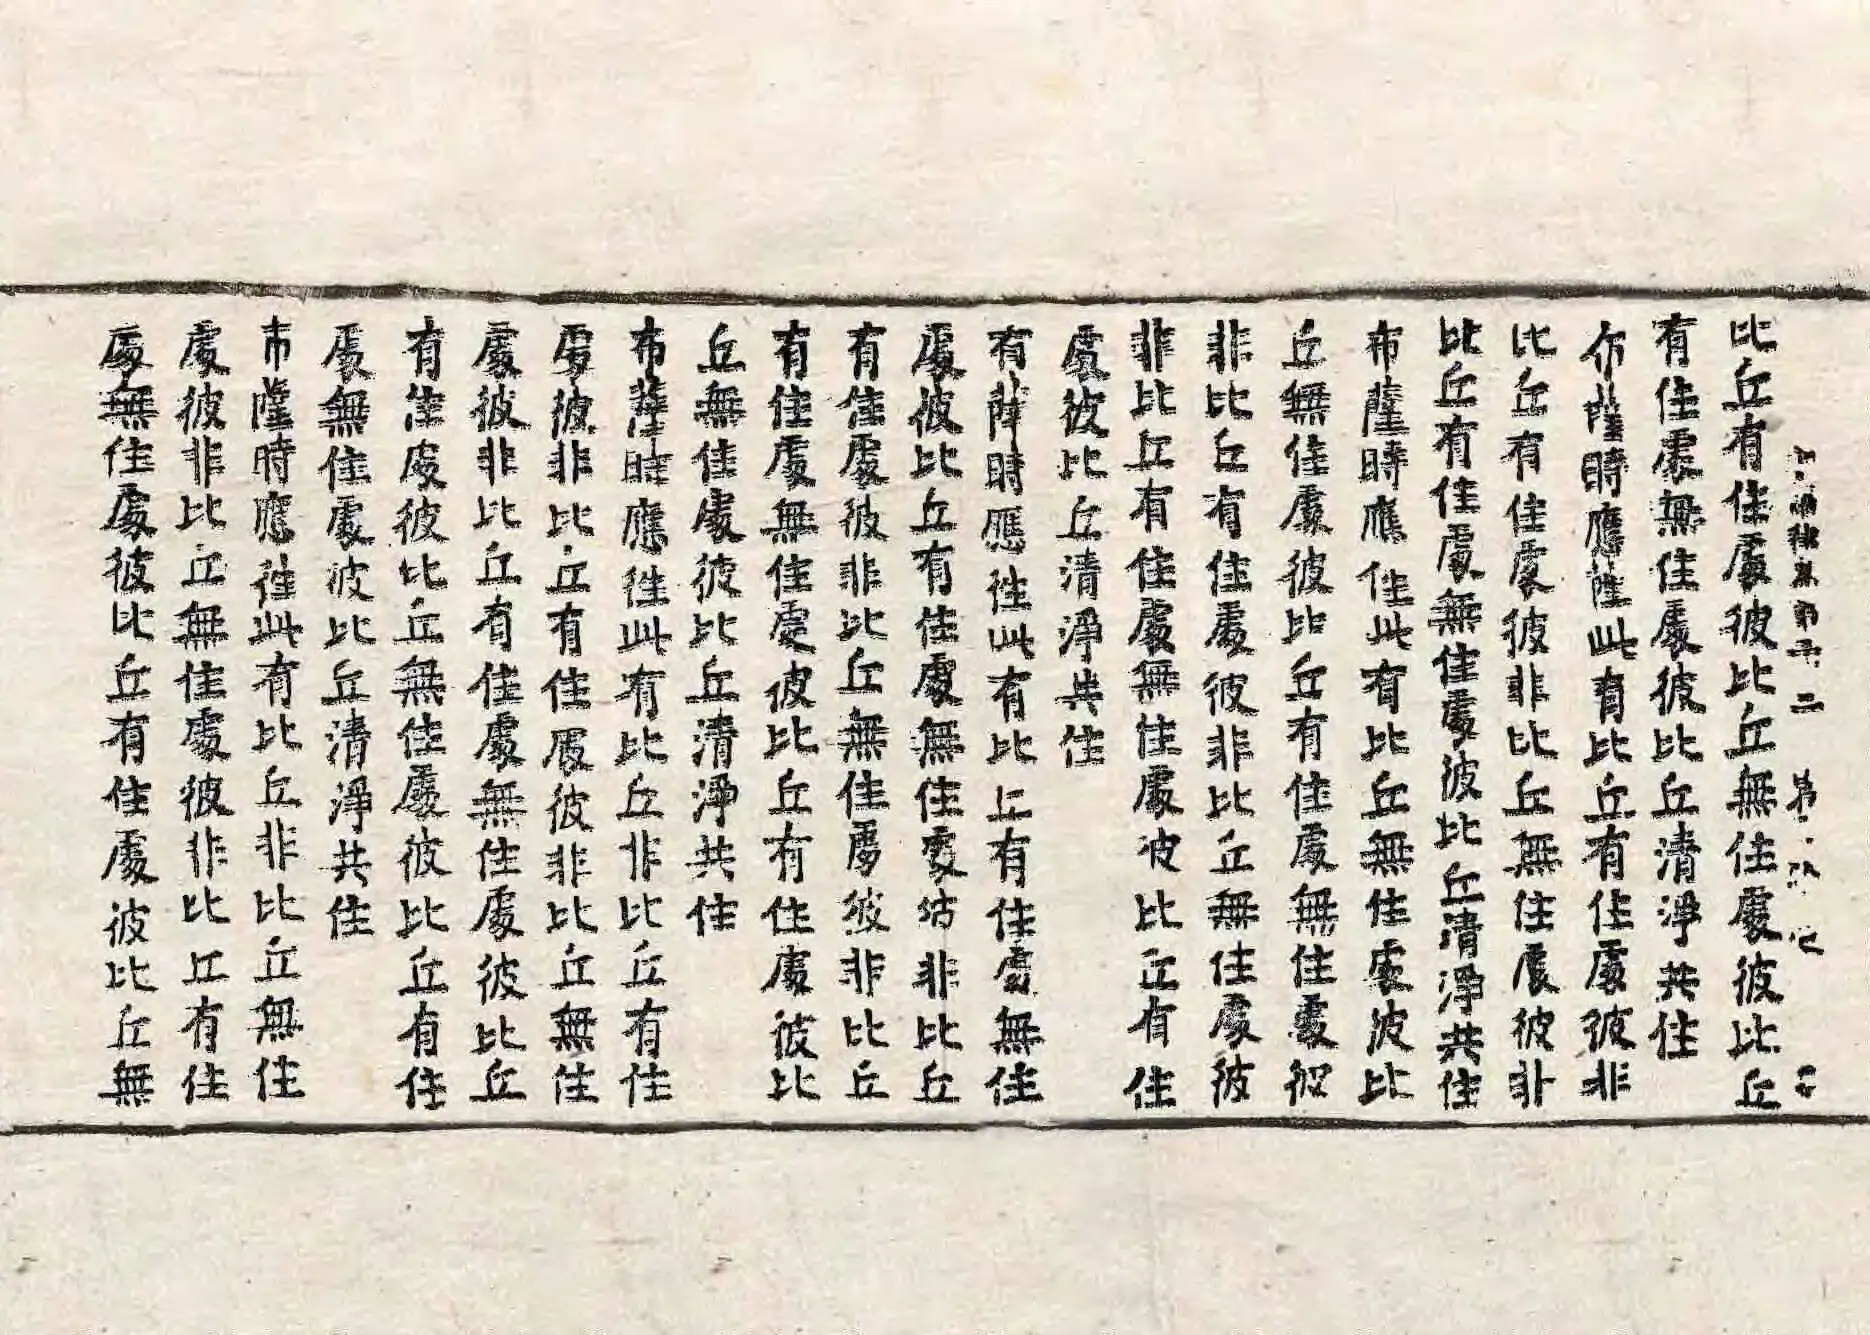 誦律 第 二 第
比丘有住處彼比丘無住處彼比丘
有住處無住處彼比丘清淨共住
布薩時應往此有比丘有住處彼非
比丘有住處彼非比丘無住處彼非
比丘有住處無住處彼比丘清淨共住
布薩時應往此有比丘無住處彼比
丘無住處彼比丘有住處無住處彼
非比丘有住處彼非比丘無住處彼
非比丘有住處無住處彼比丘有住
處彼比丘清淨共住
有薩時應往此有比丘有住處無住
處彼比丘有住處無住處非比丘
有住處彼非比丘無住處彼非比丘
有住處無住處彼比丘有住處彼比
丘無住處彼比丘清淨共住
布薩時應往此有比丘非比丘有住
處彼非比丘有住處彼非比丘無住
處彼非比丘有住處無住處彼比丘
有住處彼比丘無住處彼比丘有住
處無住處彼比丘清淨共住
布薩時應往此有比丘非比丘無住
處彼非比丘無住處彼非比丘有住
處無住處彼比丘有住處彼比丘無